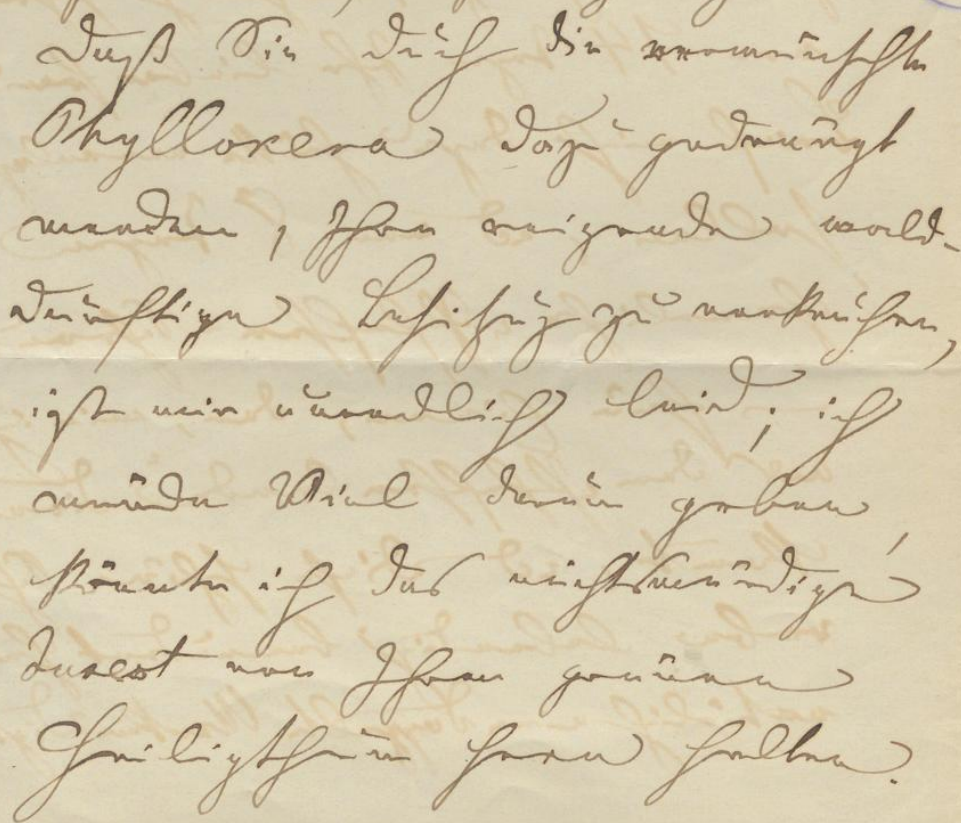 daß Sie durch die verwünschte
Phylloxera dazu gedrängt
werden, Ihre reizende wald-
duftige Besitzung zu verkaufen,
ist mir unendlich leid; ich
würde Viel darum geben,
könnte ich das nichtswürdige
Insect von Ihrem grünen
Heiligthum fern halten.